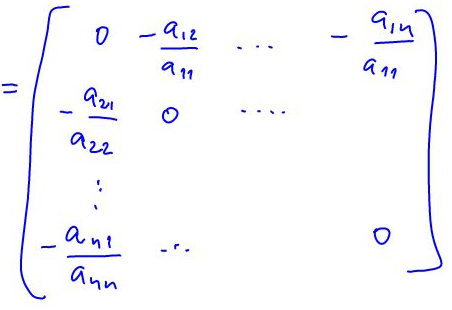 = [ 0 - a₁₂/a₁₁ ... - a₁ₙ/a₁₁ ]
[ - a₂₁/a₂₂ 0 .... ]
[ ⋮ ]
[ - aₙ₁/aₙₙ ... 0 ]